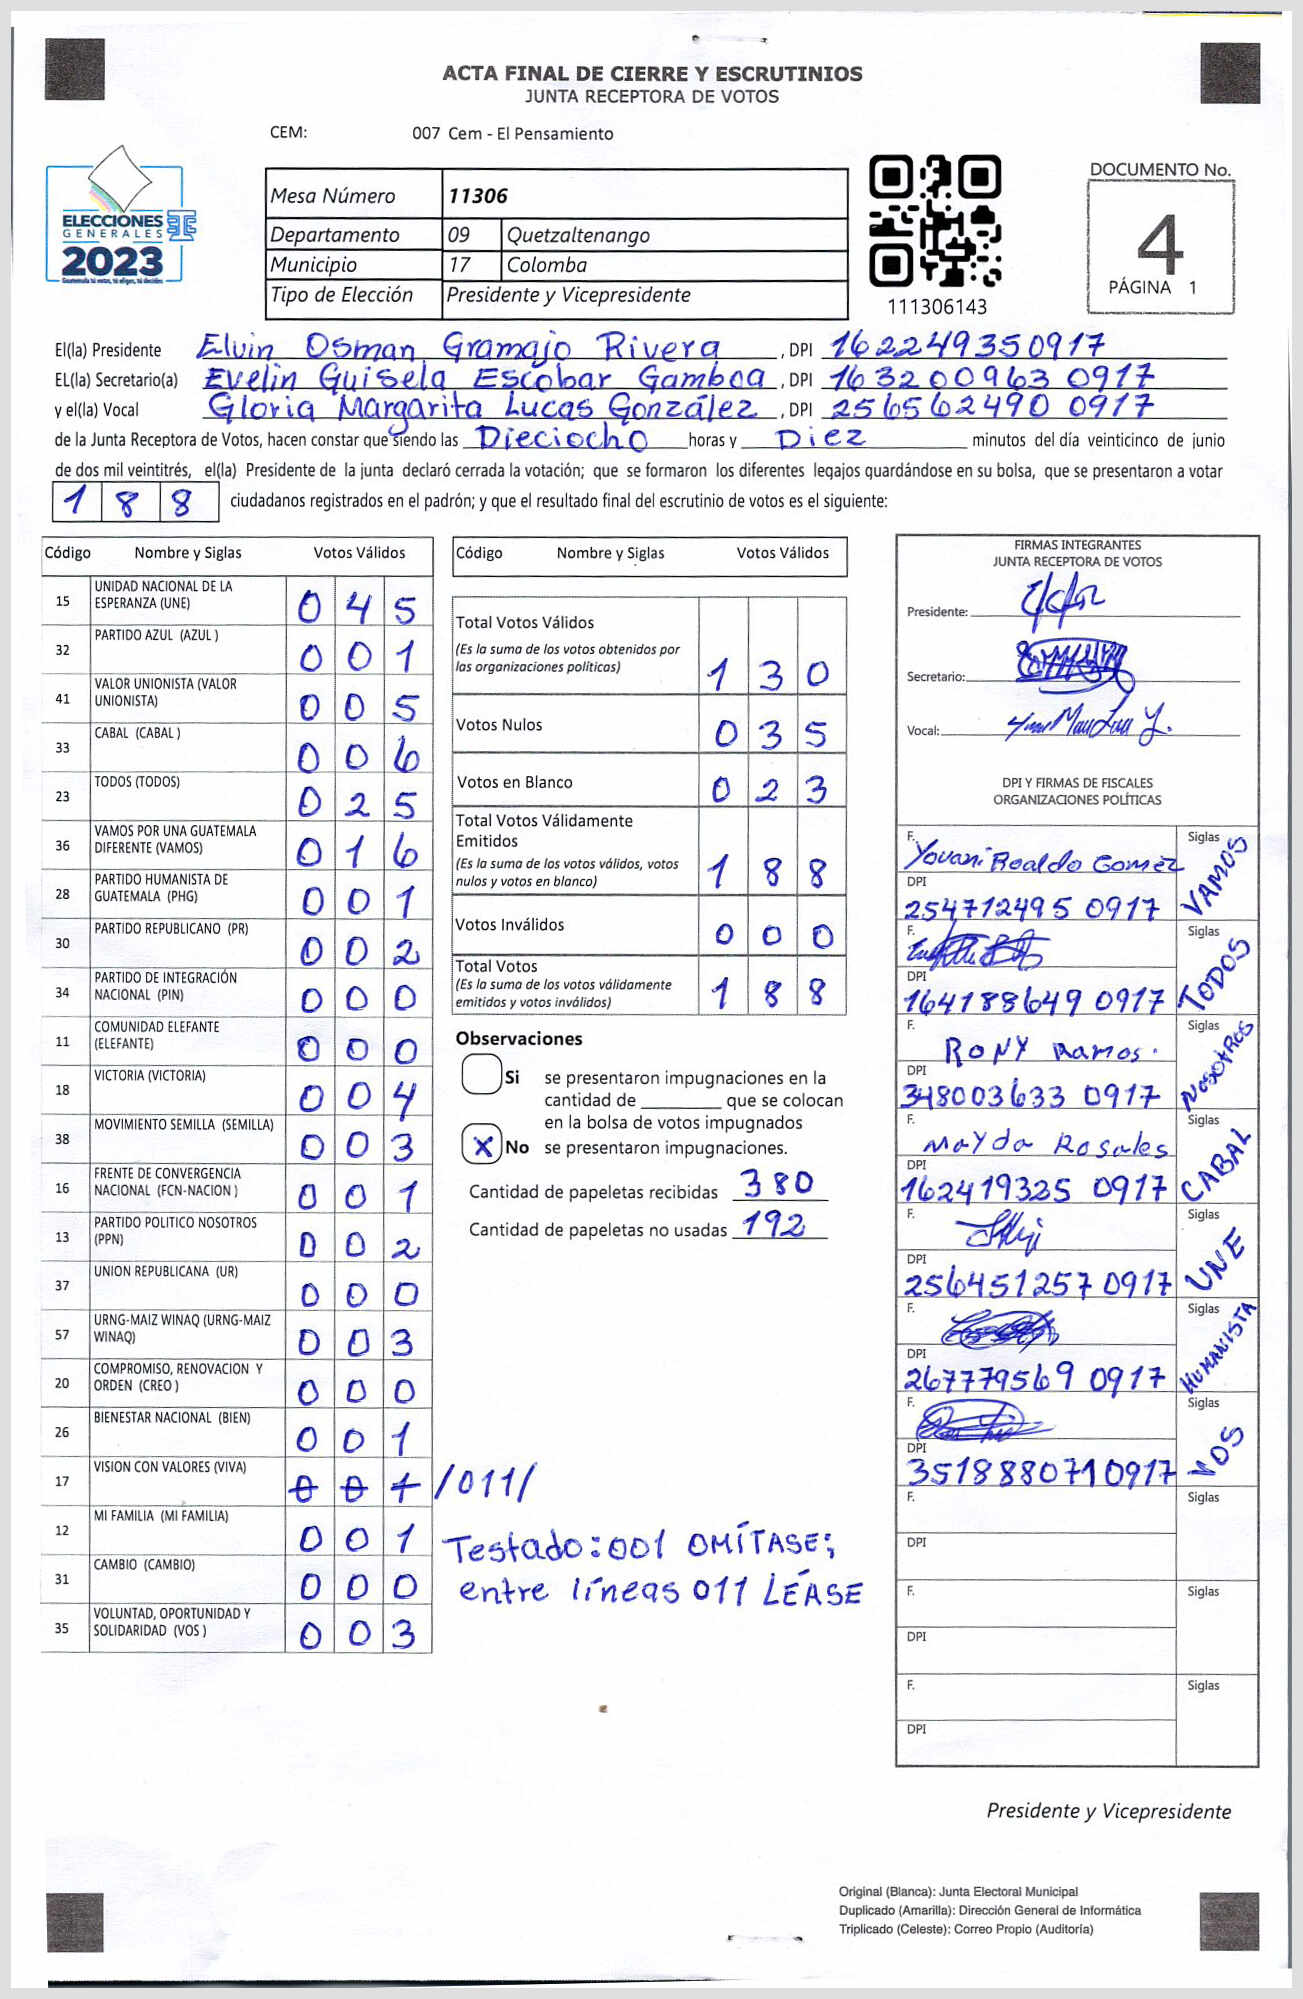 ACTA FINAL DE CIERRE Y ESCRUTINIOS
JUNTA RECEPTORA DE VOTOS
CEM: 007 Cem - El Pensamiento
ELECCIONES
GENERALES
2023
Guatemala tú votas, tú eliges, tú decides
Mesa Número 11306
Departamento 09 Quetzaltenango
Municipio 17 Colomba
Tipo de Elección Presidente y Vicepresidente
111306143
DOCUMENTO No.
4
PÁGINA 1
El(la) Presidente Elvin Osman Gramajo Rivera , DPI 162249350917
EL(la) Secretario(a) Evelin Guisela Escobar Gamboa , DPI 163200963 0917
y el(la) Vocal Gloria Margarita Lucas González , DPI 256562490 0917
de la Junta Receptora de Votos, hacen constar que siendo las Dieciocho horas y Diez minutos del día veinticinco de junio
de dos mil veintitrés, el(la) Presidente de la junta declaró cerrada la votación; que se formaron los diferentes legajos guardándose en su bolsa, que se presentaron a votar
1 8 8 ciudadanos registrados en el padrón; y que el resultado final del escrutinio de votos es el siguiente:
Código Nombre y Siglas Votos Válidos
15 UNIDAD NACIONAL DE LA ESPERANZA (UNE) 0 4 5
32 PARTIDO AZUL (AZUL ) 0 0 1
41 VALOR UNIONISTA (VALOR UNIONISTA) 0 0 5
33 CABAL (CABAL ) 0 0 6
23 TODOS (TODOS) 0 2 5
36 VAMOS POR UNA GUATEMALA DIFERENTE (VAMOS) 0 1 6
28 PARTIDO HUMANISTA DE GUATEMALA (PHG) 0 0 1
30 PARTIDO REPUBLICANO (PR) 0 0 2
34 PARTIDO DE INTEGRACIÓN NACIONAL (PIN) 0 0 0
11 COMUNIDAD ELEFANTE (ELEFANTE) 0 0 0
18 VICTORIA (VICTORIA) 0 0 4
38 MOVIMIENTO SEMILLA (SEMILLA) 0 0 3
16 FRENTE DE CONVERGENCIA NACIONAL (FCN-NACION ) 0 0 1
13 PARTIDO POLITICO NOSOTROS (PPN) 0 0 2
37 UNION REPUBLICANA (UR) 0 0 0
57 URNG-MAIZ WINAQ (URNG-MAIZ WINAQ) 0 0 3
20 COMPROMISO, RENOVACION Y ORDEN (CREO ) 0 0 0
26 BIENESTAR NACIONAL (BIEN) 0 0 1
17 VISION CON VALORES (VIVA) 0 0 1 /011/
12 MI FAMILIA (MI FAMILIA) 0 0 1
31 CAMBIO (CAMBIO) 0 0 0
35 VOLUNTAD, OPORTUNIDAD Y SOLIDARIDAD (VOS ) 0 0 3
Testado: 001 OMÍTASE;
entre líneas 011 LÉASE
Código Nombre y Siglas Votos Válidos
Total Votos Válidos
(Es la suma de los votos obtenidos por
las organizaciones políticas) 1 3 0
Votos Nulos 0 3 5
Votos en Blanco 0 2 3
Total Votos Válidamente
Emitidos
(Es la suma de los votos válidos, votos
nulos y votos en blanco) 1 8 8
Votos Inválidos 0 0 0
Total Votos
(Es la suma de los votos válidamente
emitidos y votos inválidos) 1 8 8
Observaciones
Si se presentaron impugnaciones en la
cantidad de ________ que se colocan
en la bolsa de votos impugnados
X No se presentaron impugnaciones.
Cantidad de papeletas recibidas 380
Cantidad de papeletas no usadas 192
FIRMAS INTEGRANTES
JUNTA RECEPTORA DE VOTOS
Presidente:
Secretario:
Vocal:
DPI Y FIRMAS DE FISCALES
ORGANIZACIONES POLÍTICAS
F. Yovani Roaldo Gomez Siglas VAMOS
DPI
254712495 0917
F. Siglas TODOS
DPI
164188649 0917
F. RONY Ramos. Siglas NOSOTROS
DPI
348003633 0917
F. Mayda Rosales Siglas CABAL
DPI
162419325 0917
F. Siglas UNE
DPI
256451257 0917
F. Siglas HUMANISTA
DPI
267779569 0917
F. Siglas VOS
DPI
3518880710917
F. Siglas
DPI
F. Siglas
DPI
F. Siglas
DPI
Presidente y Vicepresidente
Original (Blanca): Junta Electoral Municipal
Duplicado (Amarilla): Dirección General de Informática
Triplicado (Celeste): Correo Propio (Auditoría)